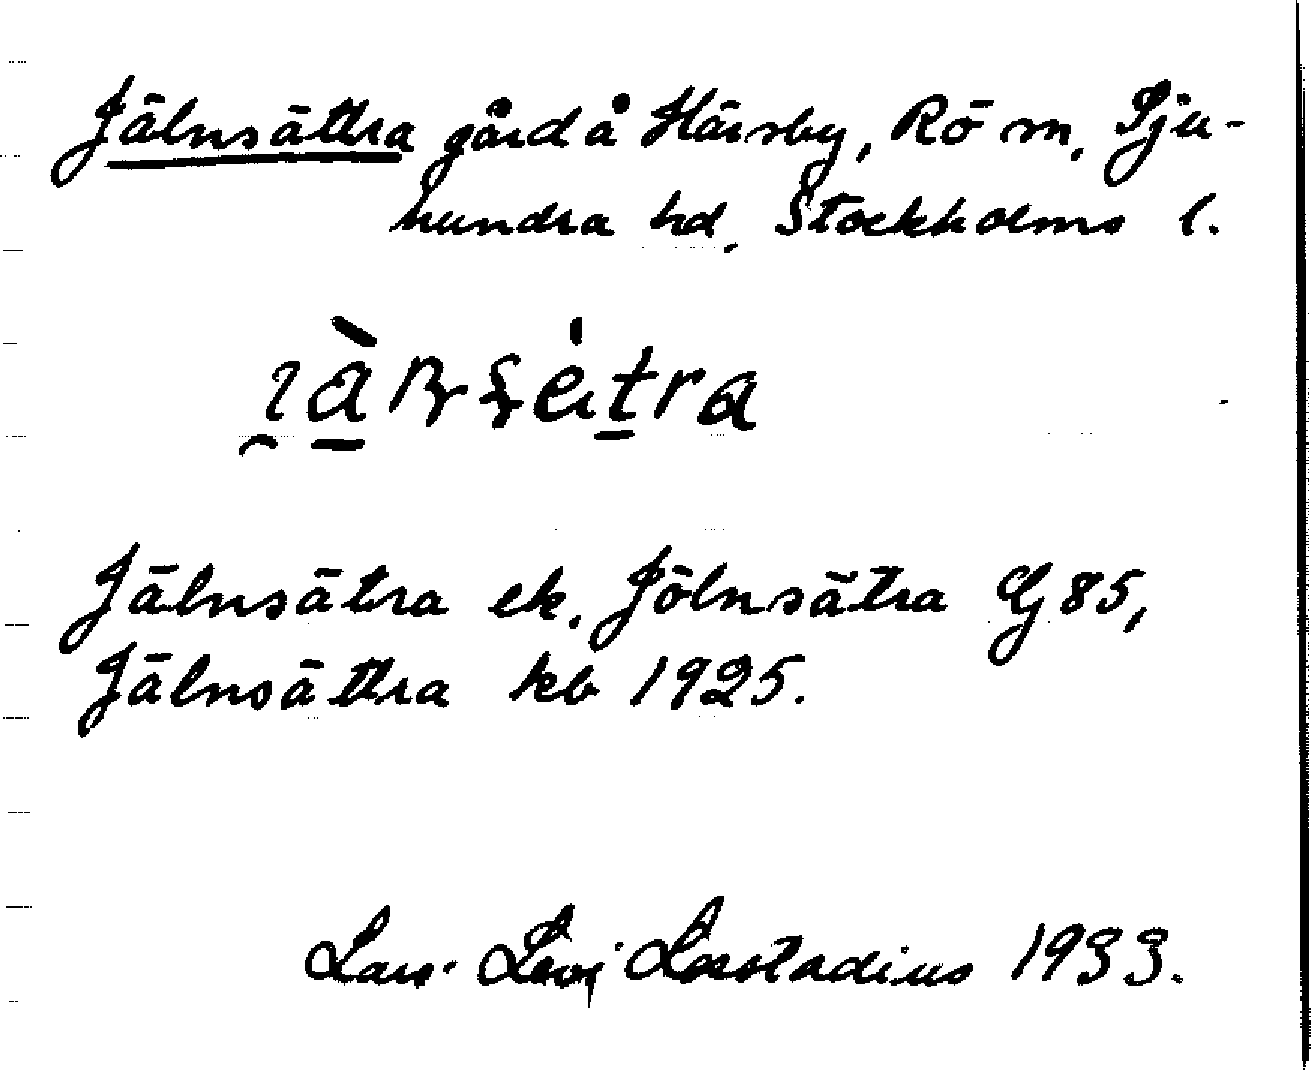 Jälnsättra gård å Härsby, Rö sn, Sju-
hundra hd, Stockholms l.
Jälnsätra ek. Jölnsätra Gj 85,
Jälnsättra kb 1925.
Lars-Levi Læstadius 1933.